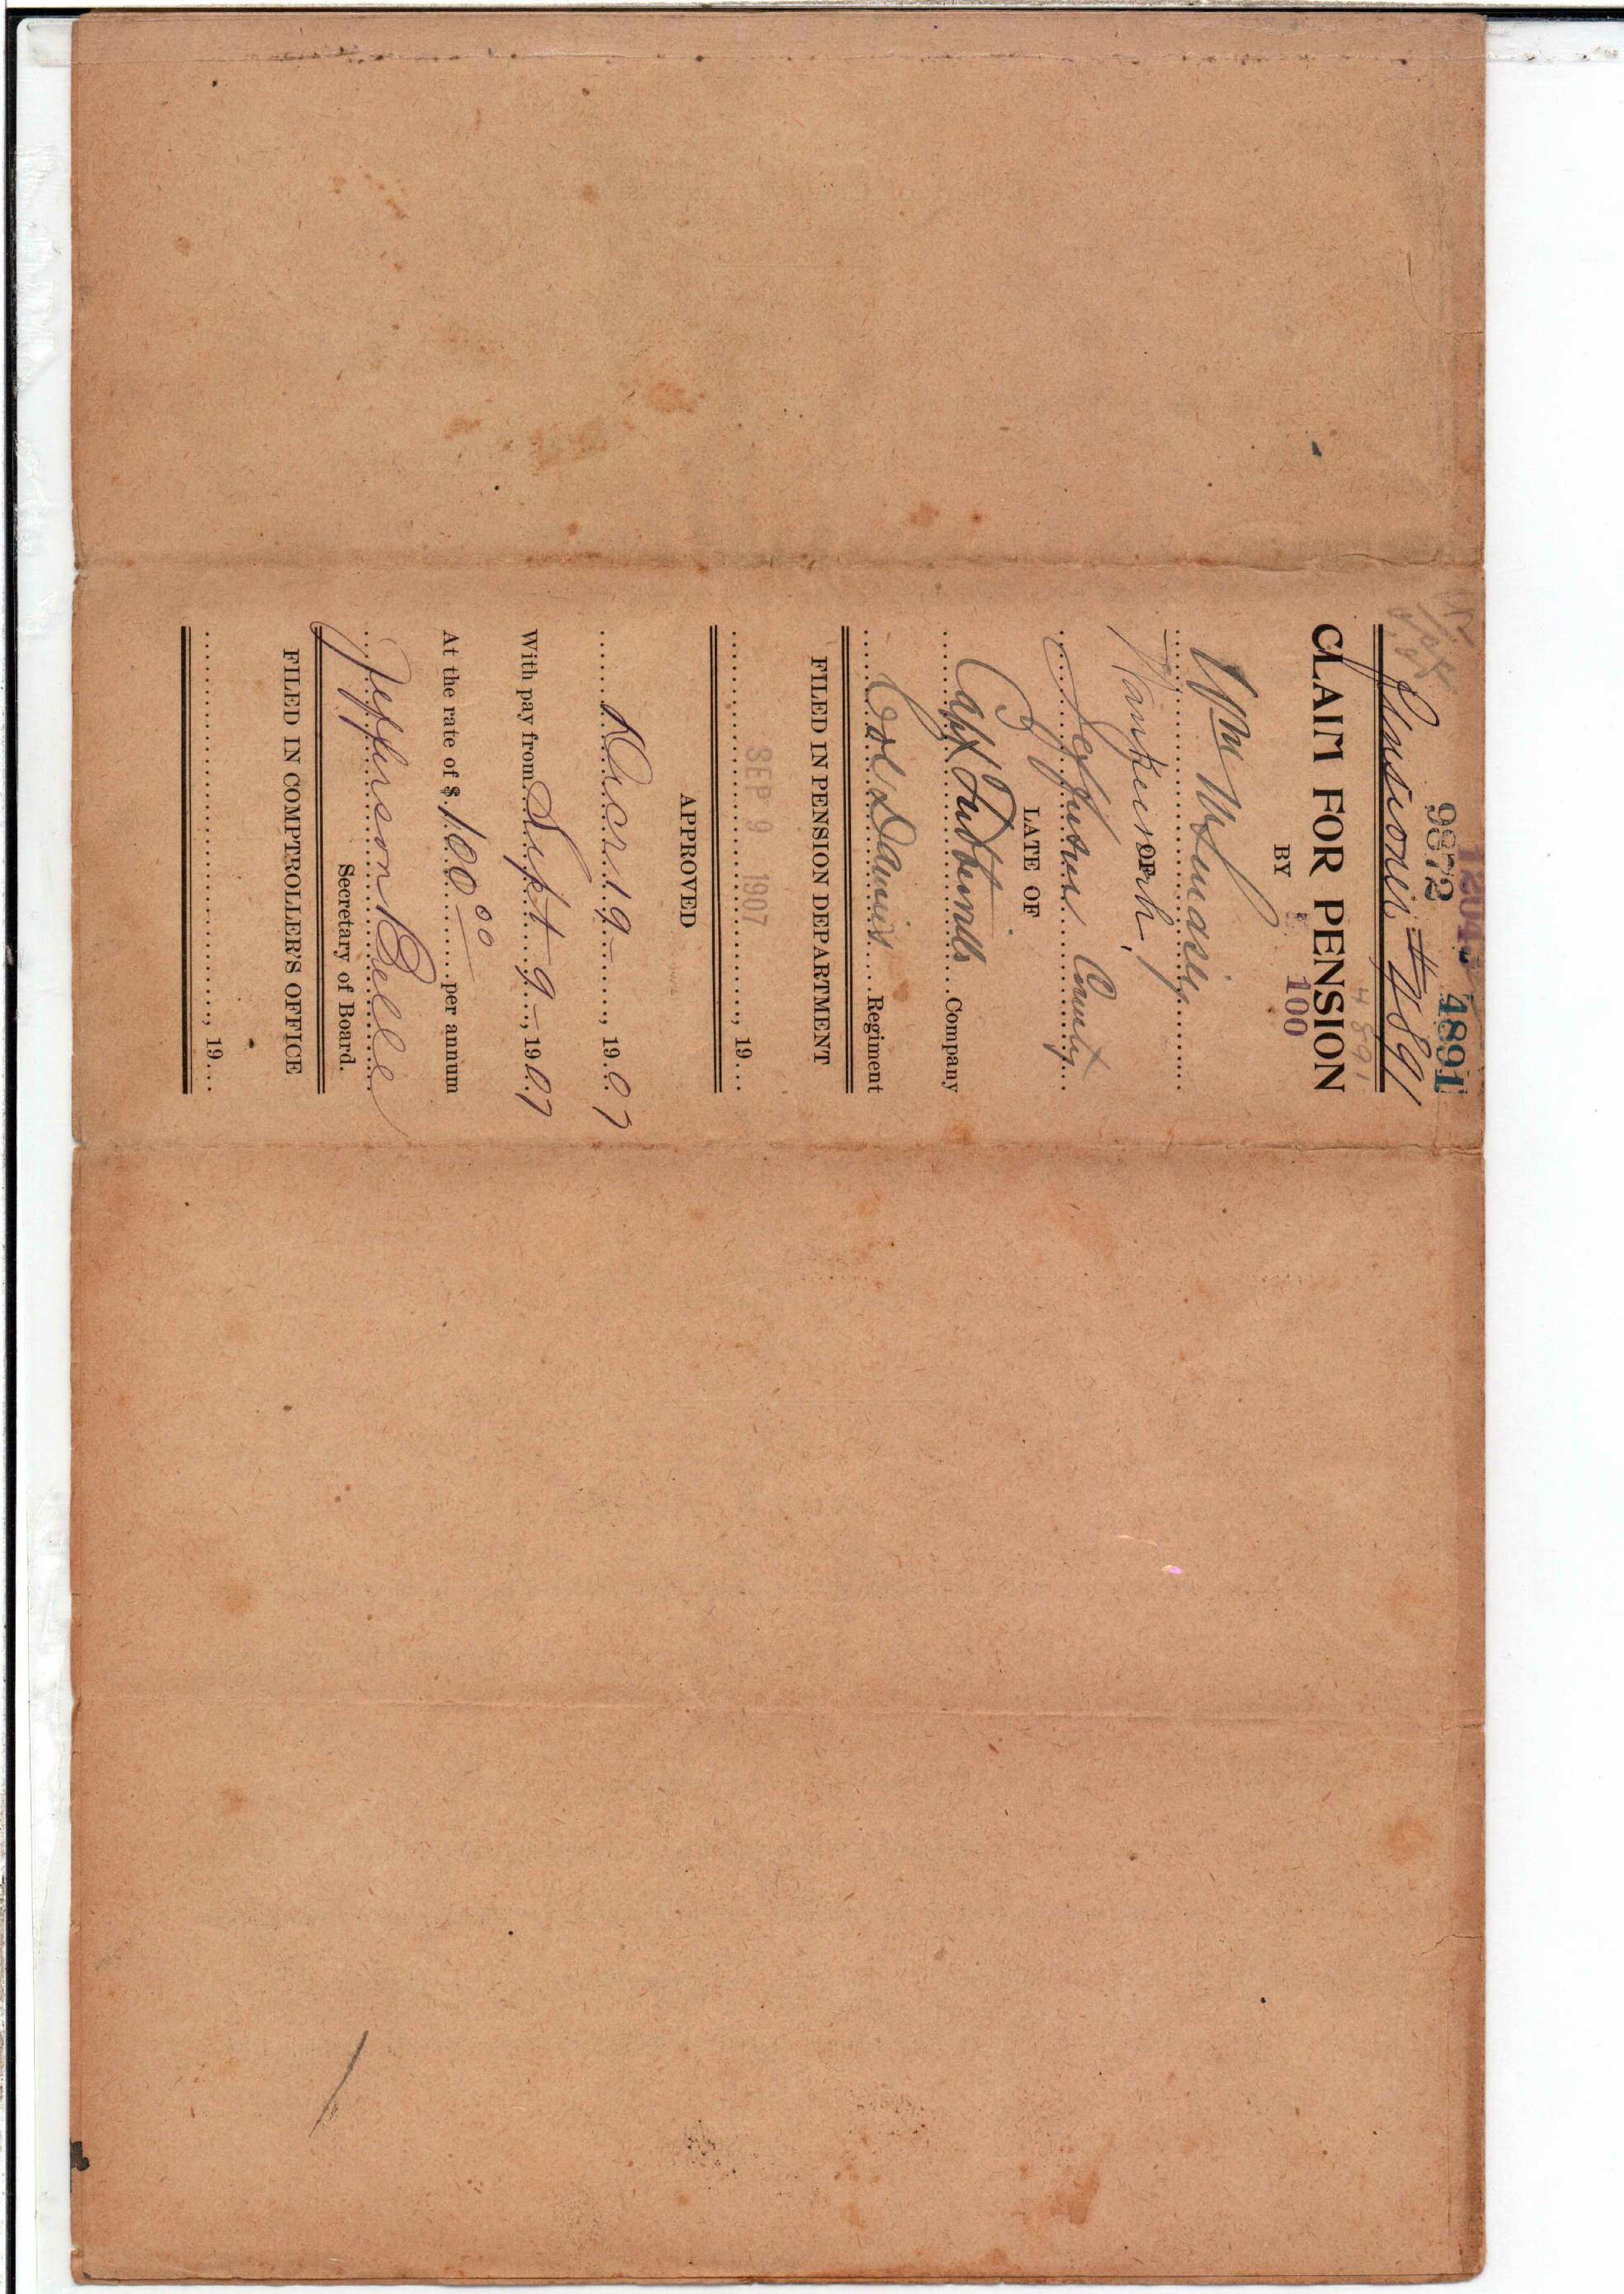 1204
9872 4891
Pensioner #4891
4891
CLAIM FOR PENSION
BY 100
Wm
OF
Jefferson County
LATE OF
Capt Company
Col Regiment
FILED IN PENSION DEPARTMENT
SEP 9 1907
, 19
APPROVED
19 , 1907
With pay from Sept 9 , 1907
At the rate of $ 100 00 per annum
Jefferson Belle
Secretary of Board.
FILED IN COMPTROLLER'S OFFICE
, 19